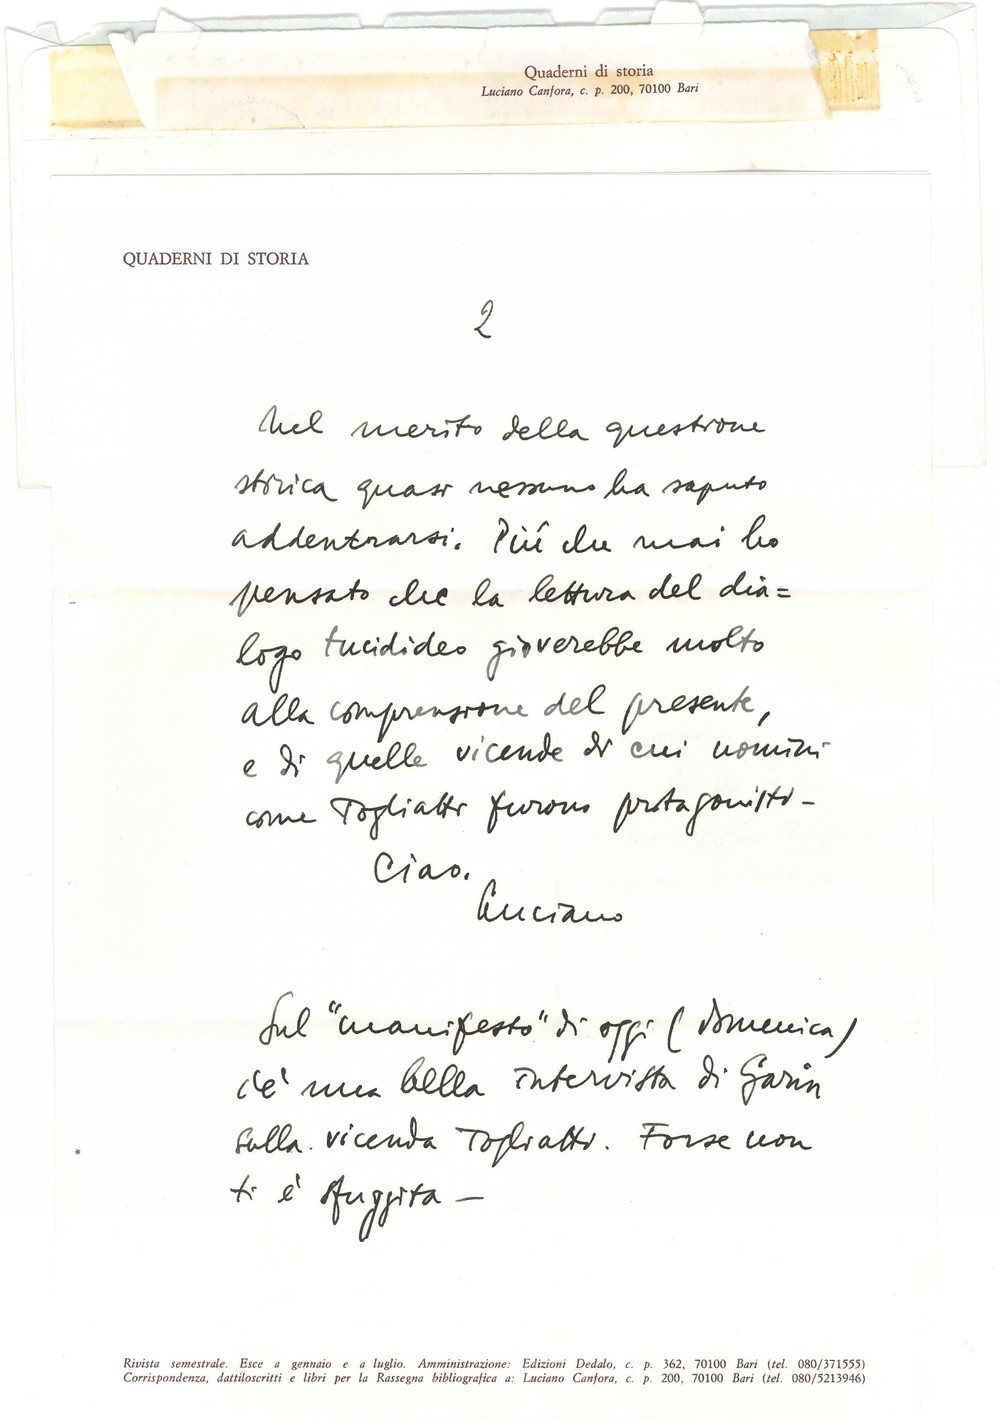 Quaderni di storia
Luciano Canfora, c. p. 200, 70100 Bari
QUADERNI DI STORIA
2
Nel merito della questione
storica quasi nessuno ha saputo
addentrarsi. Più che mai ho
pensato che la lettura del dia=
logo tucidideo gioverebbe molto
alla comprensione del presente,
e di quelle vicende di cui uomini
come Togliatti furono protagonisti –
Ciao.
Luciano
Sul "manifesto" di oggi (domenica)
c'è una bella intervista di Garin
sulla vicenda Togliatti. Forse non
ti è sfuggita —
Rivista semestrale. Esce a gennaio e a luglio. Amministrazione: Edizioni Dedalo, c. p. 362, 70100 Bari (tel. 080/371555)
Corrispondenza, dattiloscritti e libri per la Rassegna bibliografica a: Luciano Canfora, c. p. 200, 70100 Bari (tel. 080/5213946)